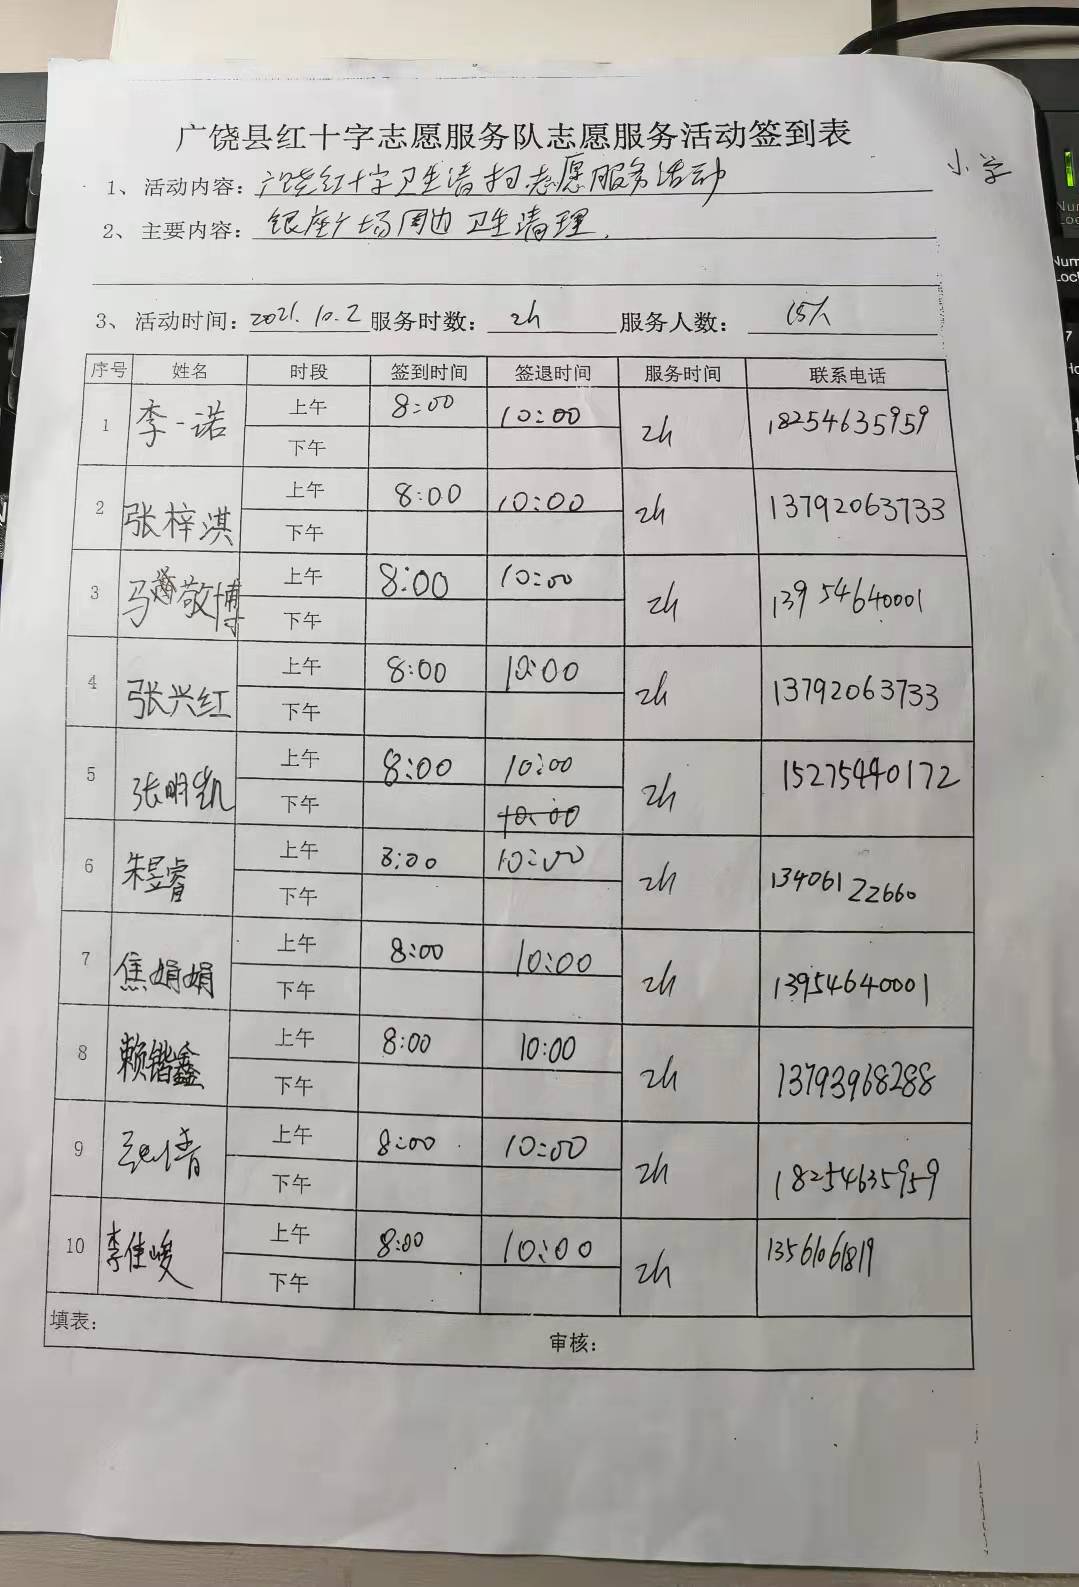 广饶县红十字志愿服务队志愿服务活动签到表
小学
1、活动内容：广饶红十字卫生清扫志愿服务活动
2、主要内容：银座广场周边卫生清理.
3、活动时间：2021.10.2 服务时数：2h 服务人数：15人
序号 姓名 时段 签到时间 签退时间 服务时间 联系电话
1 李一诺 上午 8:00 10:00 2h 18254635959
下午
2 张梓淇 上午 8:00 10:00 2h 13792063733
下午
3 马敬博 上午 8:00 10:00 2h 13954640001
下午
4 张兴红 上午 8:00 10:00 2h 13792063733
下午
5 张明凯 上午 8:00 10:00 2h 15275440172
下午 10:00
6 朱昱睿 上午 8:00 10:00 2h 13406122660
下午
7 焦娟娟 上午 8:00 10:00 2h 13954640001
下午
8 赖锴鑫 上午 8:00 10:00 2h 13793968288
下午
9 上午 8:00 10:00 2h 18254635959
下午
10 李佳峻 上午 8:00 10:00 2h 13561061819
下午
填表： 审核：